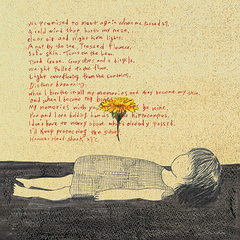 We promised to meet again when we turned 27.
A cold mind that hurts my nose,
clear air and night time lights.
A nut by the sea. Tensed Flowers.
Soft skin. Turns on the lawn.
Tired Grace. Grey skies and a bicycle,
weight Pulled to the floor.
Light overflowing from the curtains.
Distant breathing
when I breathe in all my memories and they become my skin,
and when I become the
My memories with you be mine.
You and I are holding hands hippocampus.
I don't have to worry about what's already passed.
I'd keep protecting the story.